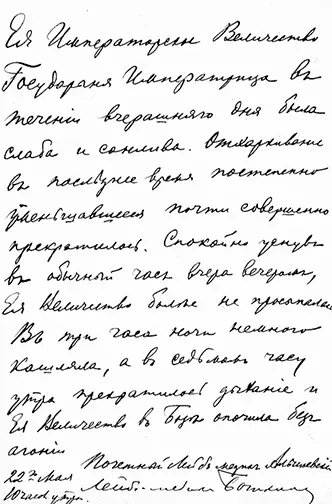 Ея Императорское Величество
Государыня Императрица въ
теченіи вчерашняго дня была
слаба и сонлива. Отхаркиваніе
въ послѣднее время постепенно
уменьшавшееся почти совершенно
прекратилось. Спокойно уснувъ
въ обычный часъ вчера вечеромъ,
Ея Величество болѣе не просыпалась
Въ три часа ночи немного
кашляла, а въ седьмомъ часу
утра прекратилось дыханіе и
Ея Величество въ Бозѣ опочила безъ
агоніи
Почетный Лейбъ медикъ Алышевскій
22го Мая Лейбъ-медикъ Боткинъ
10 часов утра.